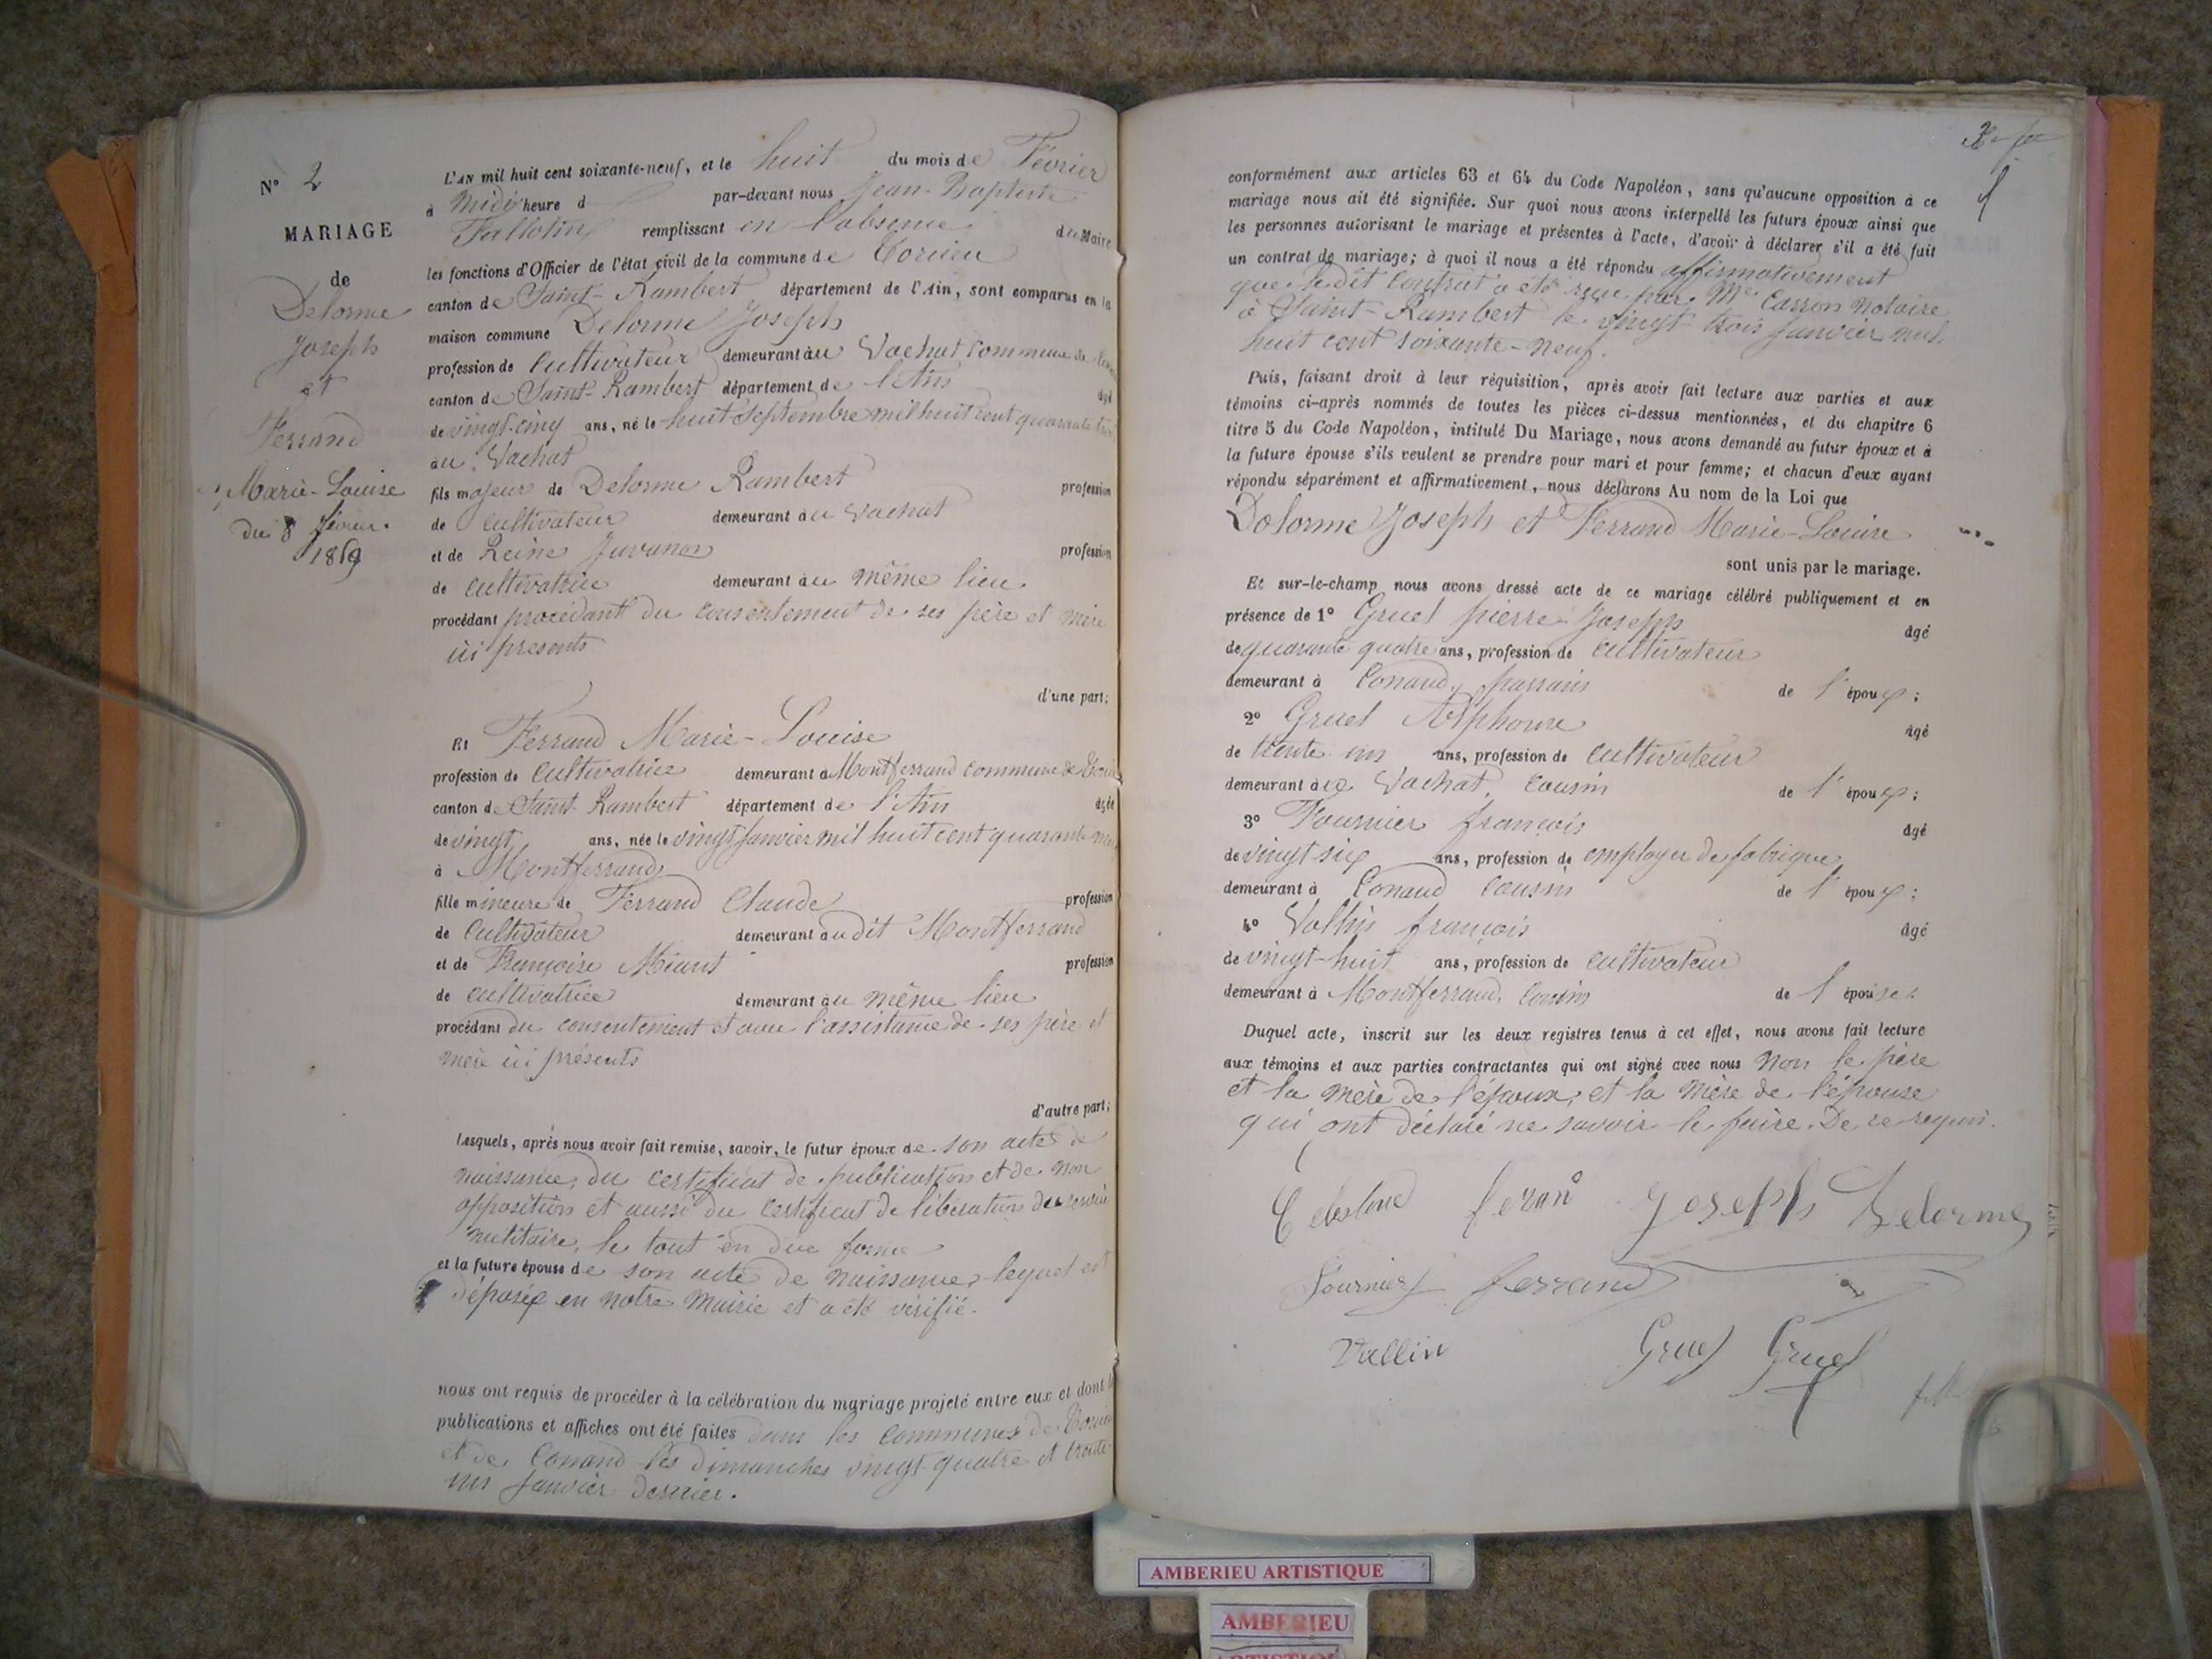 N° 2
MARIAGE
de
Delorme
Joseph
et
Ferrand
Marie-Louise
du 8 février
1869
L'AN mil huit cent soixante-neuf, et le huit du mois de Février
à Midi heure d par-devant nous Jean-Baptiste
remplissant en l'absence du Maire
les fonctions d'Officier de l'état civil de la commune de Torcieu
canton de Saint-Rambert département de l'Ain, sont comparus en la
maison commune Delorme Joseph
profession de cultivateur demeurant au Vachat commune de
canton de Saint-Rambert département de l'Ain âgé
de vingt-cinq ans, né le huit Septembre mil huit cent quarante trois
au Vachat
fils majeur de Delorme Rambert profession
de cultivateur demeurant au Vachat
et de Reine Juvanon profession
de cultivatrice demeurant au même lieu
procédant procédant du consentement de ses père et mère
ici présents
d'une part;
Et Ferrand Marie-Louise
profession de cultivatrice demeurant à Montferrand commune de Torcieu
canton de Saint-Rambert département de l'Ain âgée
de vingt ans, née le vingt Janvier mil huit cent quarante neuf
à Montferrand
fille mineure de Ferrand Claude profession
de Cultivateur demeurant audit Montferrand
et de Françoise profession
de cultivatrice demeurant au même lieu
procédant du consentement et avec l'assistance de ses père et
mère ici présents
d'autre part;
Lesquels, après nous avoir fait remise, savoir, le futur époux de son acte de
naissance, du certificat de publication et de non
opposition et aussi du certificat de libération du service
militaire, le tout en due forme
et la future épouse de son acte de naissance lequel est
déposé en notre Mairie et a été vérifié.
nous ont requis de procéder à la célébration du mariage projeté entre eux et dont les
publications et affiches ont été faites dans les communes de Torcieu
et de Conand les dimanches vingt-quatre et trente
un Janvier dernier.
conformément aux articles 63 et 64 du Code Napoléon, sans qu'aucune opposition à ce
mariage nous ait été signifiée. Sur quoi nous avons interpellé les futurs époux ainsi que
les personnes autorisant le mariage et présentes à l'acte, d'avoir à déclarer s'il a été fait
un contrat de mariage; à quoi il nous a été répondu affirmativement
que le dit contrat a été reçu par Me Carron notaire
à Saint-Rambert le vingt trois Janvier mil
huit cent soixante-neuf.
Puis, faisant droit à leur réquisition, après avoir fait lecture aux parties et aux
témoins ci-après nommés de toutes les pièces ci-dessus mentionnées, et du chapitre 6
titre 5 du Code Napoléon, intitulé Du Mariage, nous avons demandé au futur époux et à
la future épouse s'ils veulent se prendre pour mari et pour femme; et chacun d'eux ayant
répondu séparément et affirmativement, nous déclarons Au nom de la Loi que
Delorme Joseph et Ferrand Marie-Louise
sont unis par le mariage.
Et sur-le-champ nous avons dressé acte de ce mariage célébré publiquement et en
présence de 1° Gruel pierre Joseph âgé
de quarante quatre ans, profession de cultivateur
demeurant à Conand, parrain de l'époux;
2° Gruel Alphonse âgé
de trente un ans, profession de cultivateur
demeurant au Vachat, cousin de l'époux;
3° Fournier françois âgé
de vingt six ans, profession de employer de fabrique
demeurant à Conand cousin de l'époux;
4° Vallin françois âgé
de vingt-huit ans, profession de cultivateur
demeurant à Montferrand, cousin de l'épouse.
Duquel acte, inscrit sur les deux registres tenus à cet effet, nous avons fait lecture
aux témoins et aux parties contractantes qui ont signé avec nous Non le père
et la mère de l'époux, et la mère de l'épouse
qui ont déclaré ne savoir le faire. De ce requis.
Joseph Delorme
Fournier ferrand
Vallin Gruel Gruel
AMBERIEU ARTISTIQUE
AMBERIEU
ARTISTIQUE